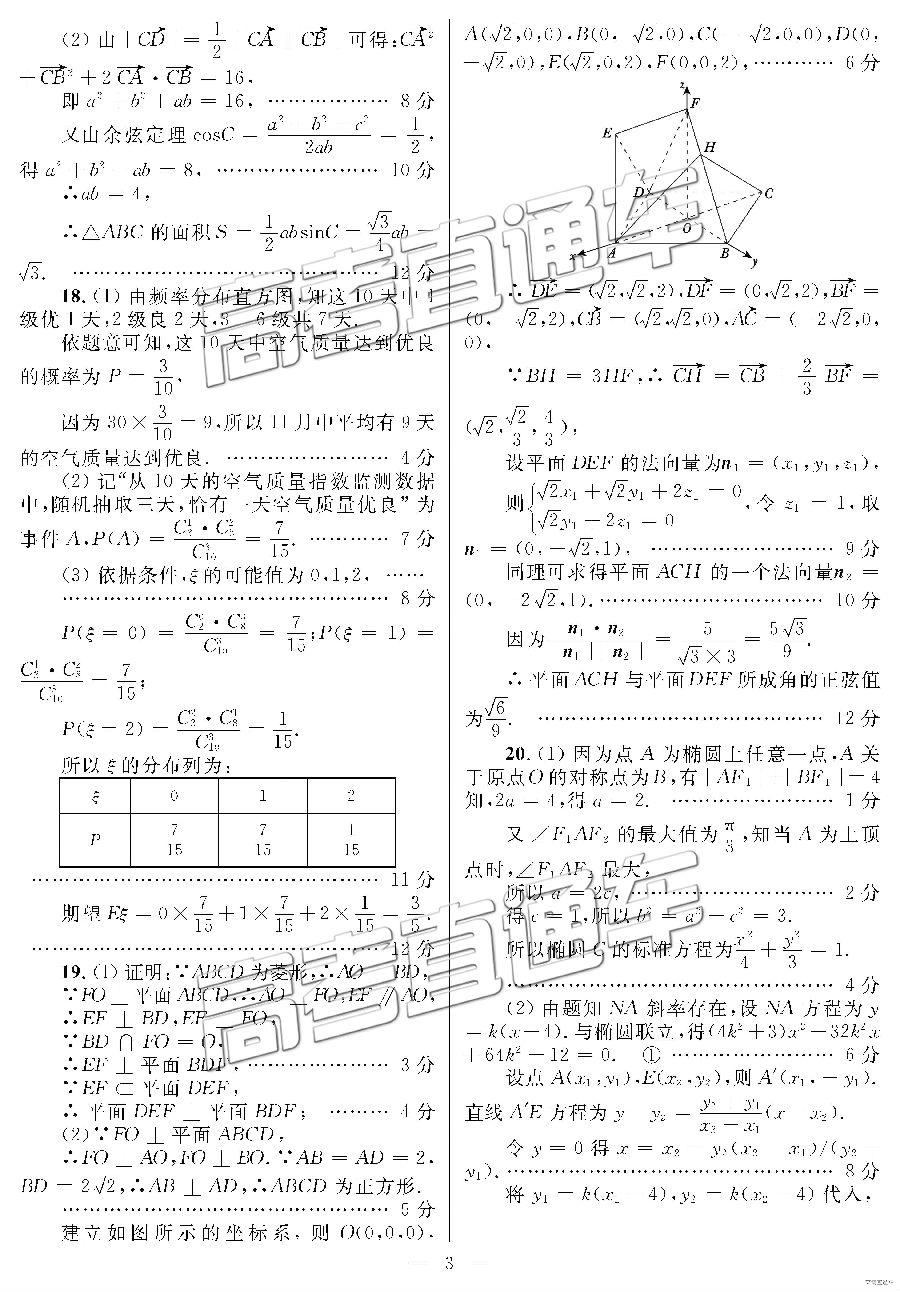 (2) 由|CD| = 1/2 |CA + CB| 可得:CA²
+CB²+2CA·CB=16,
即a²+b²+ab=16, ……………… 8分
又由余弦定理cosC=(a²+b²-c²)/2ab=1/2,
得a²+b²-ab=8, …………………… 10分
∴ab=4,
∴△ABC的面积S=1/2 absinC=√3/4 ab=
√3. ……………………………………… 12分
18.(1)由频率分布直方图,知这10天中1
级优1天,2级良2天,3-6级共7天.
依题意可知,这10天中空气质量达到优良
的概率为P=3/10,
因为30×3/10=9,所以11月中平均有9天
的空气质量达到优良. …………………… 4分
(2)记“从10天的空气质量指数监测数据
中,随机抽取三天,恰有一天空气质量优良”为
事件A,P(A)= 7/15. ………… 7分
(3)依据条件,ξ的可能值为0,1,2, ……
………………………………………… 8分
P(ξ=0)= = 7/15;P(ξ=1)=
= 7/15;
P(ξ=2)= = 1/15,
所以ξ的分布列为:
ξ 0 1 2
P 7/15 7/15 1/15
…………………………………………… 11分
期望Eξ=0×7/15+1×7/15+2×1/15=3/5.
…………………………………………… 12分
19.(1)证明:∵ABCD为菱形,∴AO⊥BD,
∵FO⊥平面ABCD,∴AO⊥FO,EF∥AO,
∴EF⊥BD,EF⊥FO,
∵BD∩FO=O,
∴EF⊥平面BDF, ………………… 3分
∵EF⊂平面DEF,
∴平面DEF⊥平面BDF; ……… 4分
(2)∵FO⊥平面ABCD,
∴FO⊥AO,FO⊥BO.∵AB=AD=2,
BD=2√2,∴AB⊥AD,∴ABCD为正方形.
………………………………………… 5分
建立如图所示的坐标系,则O(0,0,0),
A(√2,0,0),B(0,√2,0),C(-√2,0,0),D(0,
-√2,0),E(√2,0,2),F(0,0,2), ………… 6分
z
F
E
H
D
C
O
x
A
B
y
∴DE=(√2,√2,2),DF=(0,√2,2),BF=
(0,-√2,2),CB=(√2,√2,0),AC=(-2√2,0,
0),
∵BH=3HF,∴CH=CB+2/3 BF=
(√2,√2/3,4/3),
设平面DEF的法向量为n₁=(x₁,y₁,z₁),
则{√2x₁+√2y₁+2z₁=0
√2y₁+2z₁=0 ,令z₁=1,取
n₁=(0,-√2,1), ……………………… 9分
同理可求得平面ACH的一个法向量n₂=
(0,-2√2,1). …………………………… 10分
因为 n₁·n₂/|n₁||n₂| = 5/(√3×3) = 5√3/9.
∴平面ACH与平面DEF所成角的正弦值
为√6/9. …………………………………… 12分
20.(1)因为点A为椭圆上任意一点,A关
于原点O的对称点为B,有|AF₁|+|BF₁|=4
知,2a=4,得a=2. …………………… 1分
又∠F₁AF₂的最大值为π/3,知当A为上顶
点时,∠F₁AF₂最大,
所以a=2c, ………………………… 2分
得c=1,所以b²=a²-c²=3.
所以椭圆C的标准方程为x²/4+y²/3=1.
………………………………………… 4分
(2)由题知NA斜率存在,设NA方程为y
=k(x-4).与椭圆联立,得(4k²+3)x²-32k²x
+64k²-12=0. ① …………………… 6分
设点A(x₁,y₁),E(x₂,y₂),则A′(x₁,-y₁).
直线A′E方程为y-y₂=(y₂+y₁)/(x₂-x₁)(x-x₂).
令y=0得x=x₂-y₂(x₂-x₁)/(y₂+
y₁). ………………………………………… 8分
将y₁=k(x₁-4),y₂=k(x₂-4)代入,
3
高考直通车
高考直通车